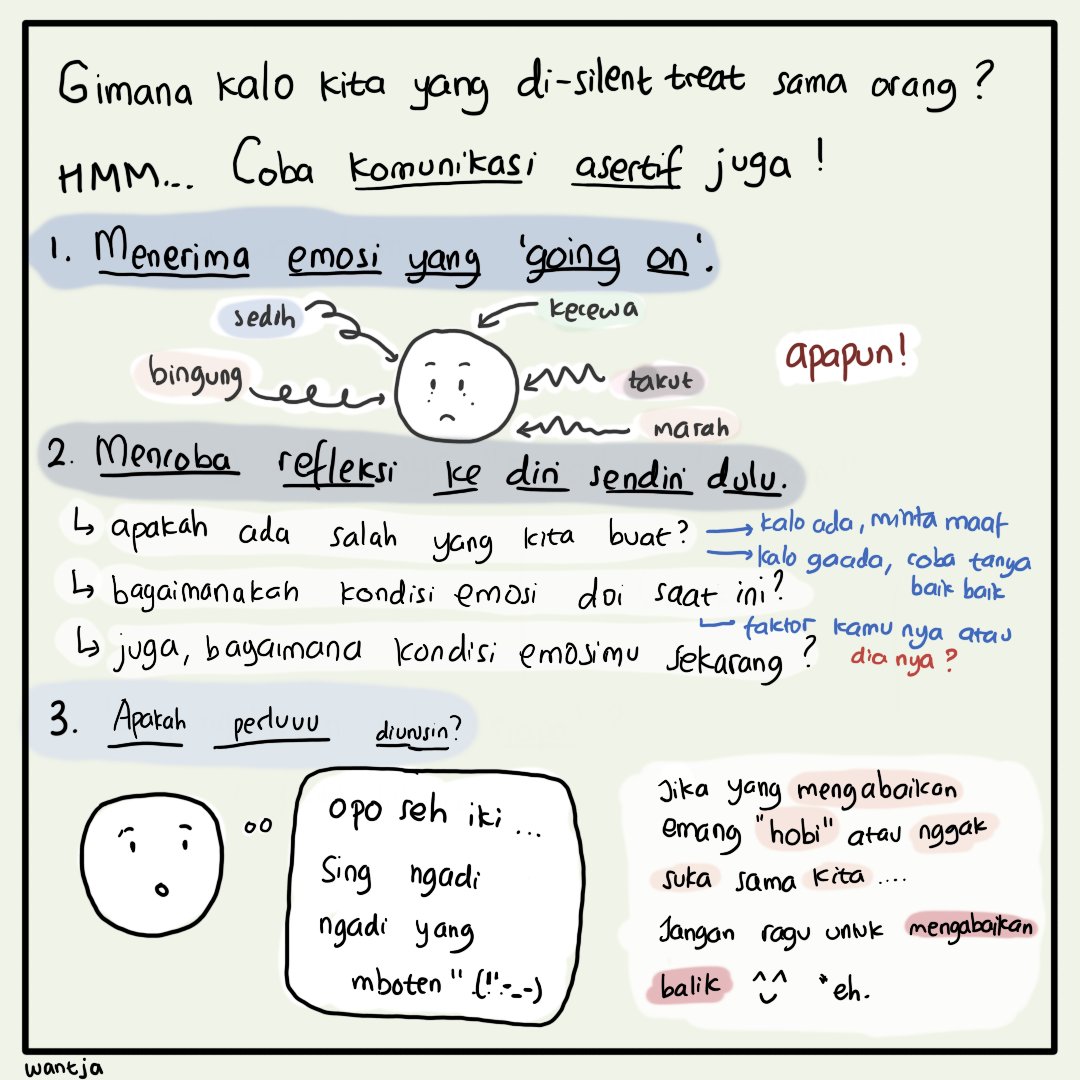 Gimana kalo kita yang di-silent treat sama orang?
HMM... Coba komunikasi asertif juga!
1. Menerima emosi yang 'going on'.
sedih
kecewa
bingung
takut
marah
apapun!
2. Mencoba refleksi ke diri sendiri dulu.
↳ apakah ada salah yang kita buat?
→ kalo ada, minta maaf
→ kalo gaada, coba tanya
baik baik
↳ bagaimanakah kondisi emosi doi saat ini?
faktor kamu nya atau
dia nya?
↳ juga, bagaimana kondisi emosimu sekarang?
3. Apakah perluuu diurusin?
opo seh iki ...
Sing ngadi
ngadi yang
mboten" (!!-_-)
Jika yang mengabaikan
emang "hobi" atau nggak
suka sama kita ....
Jangan ragu untuk mengabaikan
balik ^^ *eh.
wantja